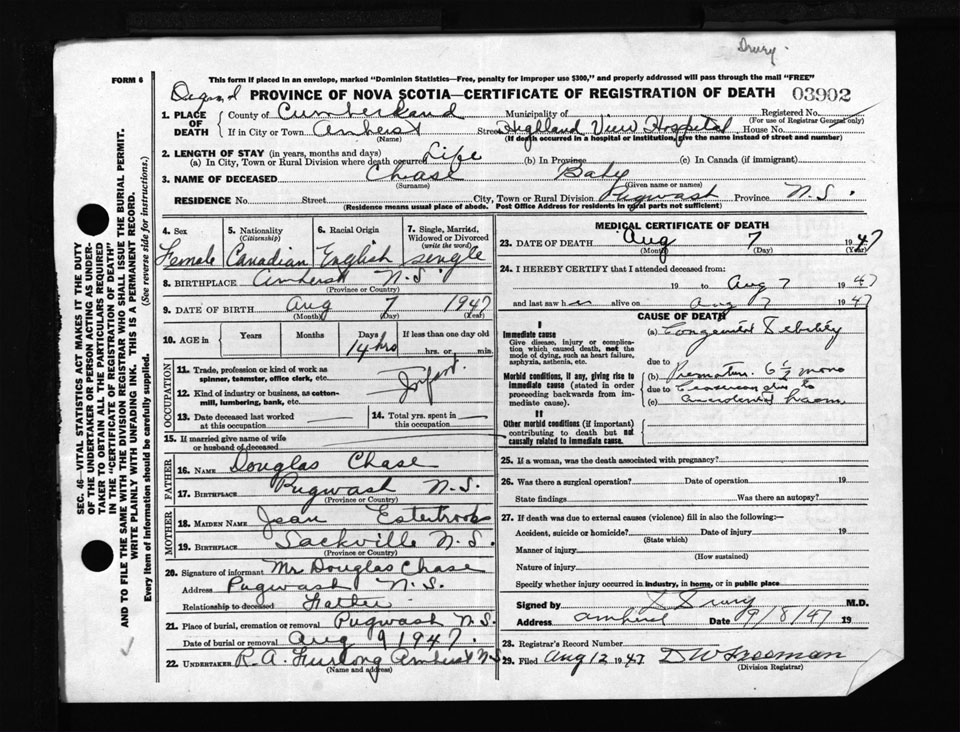 Drury.
FORM 6
This form if placed in an envelope, marked "Dominion Statistics—Free, penalty for improper use $300," and properly addressed will pass through the mail "FREE"
PROVINCE OF NOVA SCOTIA—CERTIFICATE OF REGISTRATION OF DEATH 03902
1. PLACE OF DEATH
County of Cumberland Municipality of Registered No.
(For use of Registrar General only)
If in City or Town Amherst Street Highland View Hospital House No.
(Name) (If death occurred in a hospital or institution, give the name instead of street and number)
2. LENGTH OF STAY (in years, months and days)
(a) In City, Town or Rural Division where death occurred Life (b) In Province (c) In Canada (if immigrant)
3. NAME OF DECEASED Chase Baby
(Surname) (Given name or names)
RESIDENCE No. Street City, Town or Rural Division Pugwash Province N.S.
(Residence means usual place of abode. Post Office Address for residents in rural parts not sufficient)
4. Sex 5. Nationality (Citizenship) 6. Racial Origin 7. Single, Married, Widowed or Divorced (write the word)
Female Canadian English single
8. BIRTHPLACE Amherst N.S.
(Province or Country)
9. DATE OF BIRTH Aug 7 1947
(Month) (Day) (Year)
10. AGE in Years Months Days If less than one day old
14 hrs hrs. or min.
OCCUPATION
11. Trade, profession or kind of work as spinner, teamster, office clerk, etc.
Infant
12. Kind of industry or business, as cotton-mill, lumbering, bank, etc.
13. Date deceased last worked at this occupation
14. Total yrs. spent in this occupation
15. If married give name of wife or husband of deceased
FATHER
16. NAME Douglas Chase
17. BIRTHPLACE Pugwash N.S.
(Province or Country)
MOTHER
18. MAIDEN NAME Jean Estabrook
19. BIRTHPLACE Sackville N.S.
(Province or Country)
20. Signature of informant Mr Douglas Chase
Address Pugwash N.S.
Relationship to deceased Father
21. Place of burial, cremation or removal Pugwash N.S.
Date of burial or removal Aug 9 1947.
22. UNDERTAKER R. A. Furlong Amherst N.S.
(Name and address)
MEDICAL CERTIFICATE OF DEATH
23. DATE OF DEATH Aug 7 1947
(Month) (Day) (Year)
24. I HEREBY CERTIFY that I attended deceased from:
19 to Aug 7 1947
and last saw her alive on Aug 7 1947
CAUSE OF DEATH
I
Immediate cause
Give disease, injury or complication which caused death, not the mode of dying, such as heart failure, asphyxia, asthenia, etc.
(a) Congenital Debility
due to
Morbid conditions, if any, giving rise to immediate cause (stated in order proceeding backwards from immediate cause).
(b) Premature. 6 1/2 mons
due to
(c)
II
Other morbid conditions (if important) contributing to death but not causally related to immediate cause.
25. If a woman, was the death associated with pregnancy?
26. Was there a surgical operation? Date of operation 19
State findings Was there an autopsy?
27. If death was due to external causes (violence) fill in also the following:—
Accident, suicide or homicide? Date of injury 19
(State which)
Manner of injury
(How sustained)
Nature of injury
Specify whether injury occurred in industry, in home, or in public place
Signed by Drury M.D.
Address Amherst Date 9/8/47 19
28. Registrar's Record Number
29. Filed Aug 12 1947 D W Freeman
(Division Registrar)
SEC. 46—VITAL STATISTICS ACT MAKES IT THE DUTY
OF THE UNDERTAKER OR PERSON ACTING AS UNDER-
TAKER TO OBTAIN ALL THE PARTICULARS REQUIRED
IN THE "CERTIFICATE OF REGISTRATION OF DEATH"
AND TO FILE THE SAME WITH THE DIVISION REGISTRAR WHO SHALL ISSUE THE BURIAL PERMIT.
WRITE PLAINLY WITH UNFADING INK. THIS IS A PERMANENT RECORD.
Every item of information should be carefully supplied. (See reverse side for instructions.)